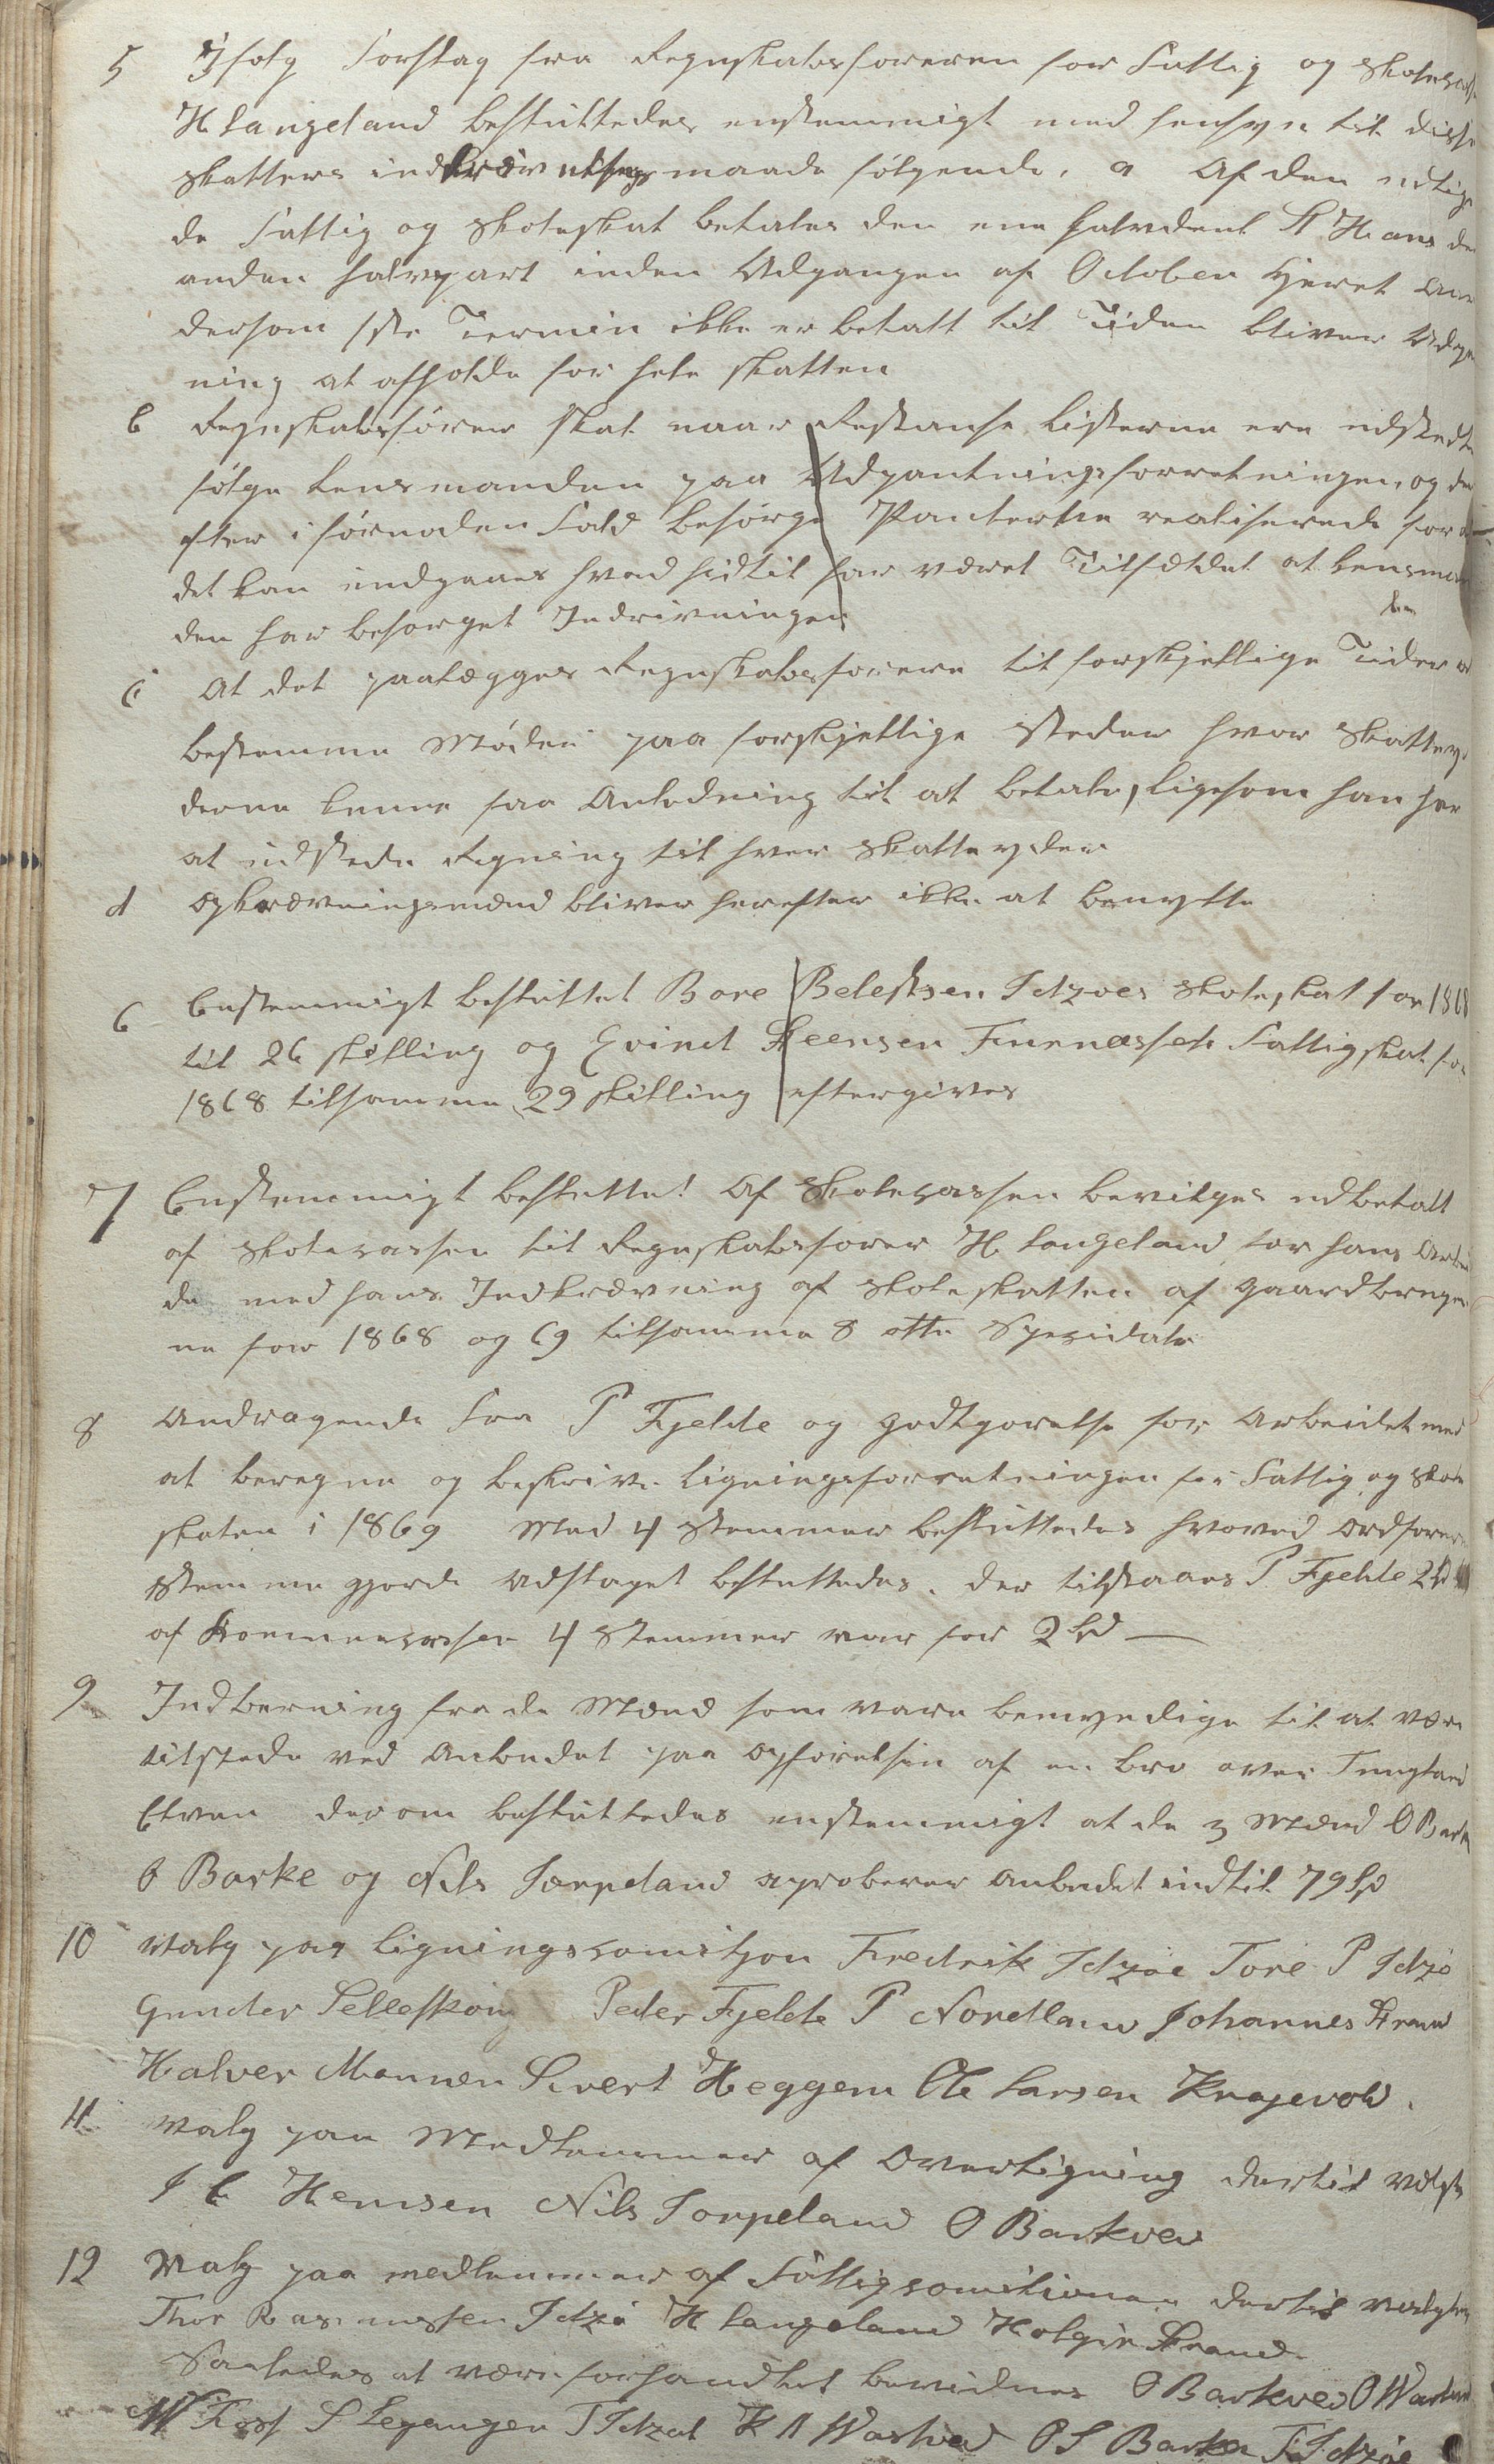 5 Ifølg Forslag fra Regnskabsføreren for Fattig og Skolekasse
H Langeland besluttedes enstemmigt med hensyn til disse
skatters indkrævelsesmaade følgende, a Af den udlig
de Fattig og skoleskat betales den ene halvdeel St Hans den
anden halvpart inden Udgangen af October hjeret
dersom 1ste Termin ikke er betalt til Tiden bliver Udpant
ning at afholde for hele skatten
b Regnskabsfører skal naar Restanse Listerne ere udstedte
følge Lensmanden paa Udpantningsforretningen, og der
efter i fornøden Fald besørge Panterne realiserede for at
det kan undgaaes hvad hidtil har været Tilfældet at Lensman
den har besørget Inddrivningen
c At det paalægges Regnskabsføreren til forskjellige Tider at
bestemme Møder paa forskjellige steder hvor skattey
derne kunne faa Anledning til at betale, ligesom han har
at udstede Regning til hver skatteyder
d Opkrævningsmænd bliver herefter ikke at benytte
6 Enstemmigt besluttet Bore Belestsen Idzøes skoleskat for 1868
til 26 skilling og Evind Steensen Furenæssets Fattigskat for
1868 tilsamme 29 skilling eftergives
7 Enstemmigt besluttet Af Skolecassen bevilges udbetalt
af skolecassen til Regnskabsfører H Langeland for hans Arbei
de med hans Indkrævning af skoleskatten af Gaardbruger
ne for 1868 og 69 tilsamme 8 otte Spesidaler
8 Andragende fra P Fjelde og godtgjørelse for Arbeidet med
at beregne og beskrive ligningsforretningen for Fattig og Skole
skaten i 1869 Med 4 stemmer besluttedes hvorved Ordførerens
stemme gjorde Udslaget besluttedes. der tilstaaes P Fjelde
af Kommunecassen 4 stemmer var for 2 Spd
9 Indberning fra de Mænd som vare bemyndige til at være
tilstede ved Anbudet paa Opførelsen af en bro over Tungland
Elven derom besluttedes enstemmigt at de 3 Mænd O Bark
O Barke og Nils Torpeland aproberer Anbudet indtil 79 Spd
10 Valg paa Ligningscomisjon Fredrik Idzøe Tore P Idzø
Gunder Selleskoug Peder Fjelde P Nordland Johannes Strand
Halver Mannen Sivert Heggem Ole Larsen Kragevold.
11 Valg paa Medlemmer af Overligning dertil valgte
Hemsen Nils Torpeland O Barkved
12 Valg paa medlemmer af Fattigcomitionen dertil valgtes
Thor Rasmussen Idzø H Langeland Holger Strand
Saaledes at være forhandlet bevidner O Barkved O
S Legangen T Idzøl O S Barka T Idzøe